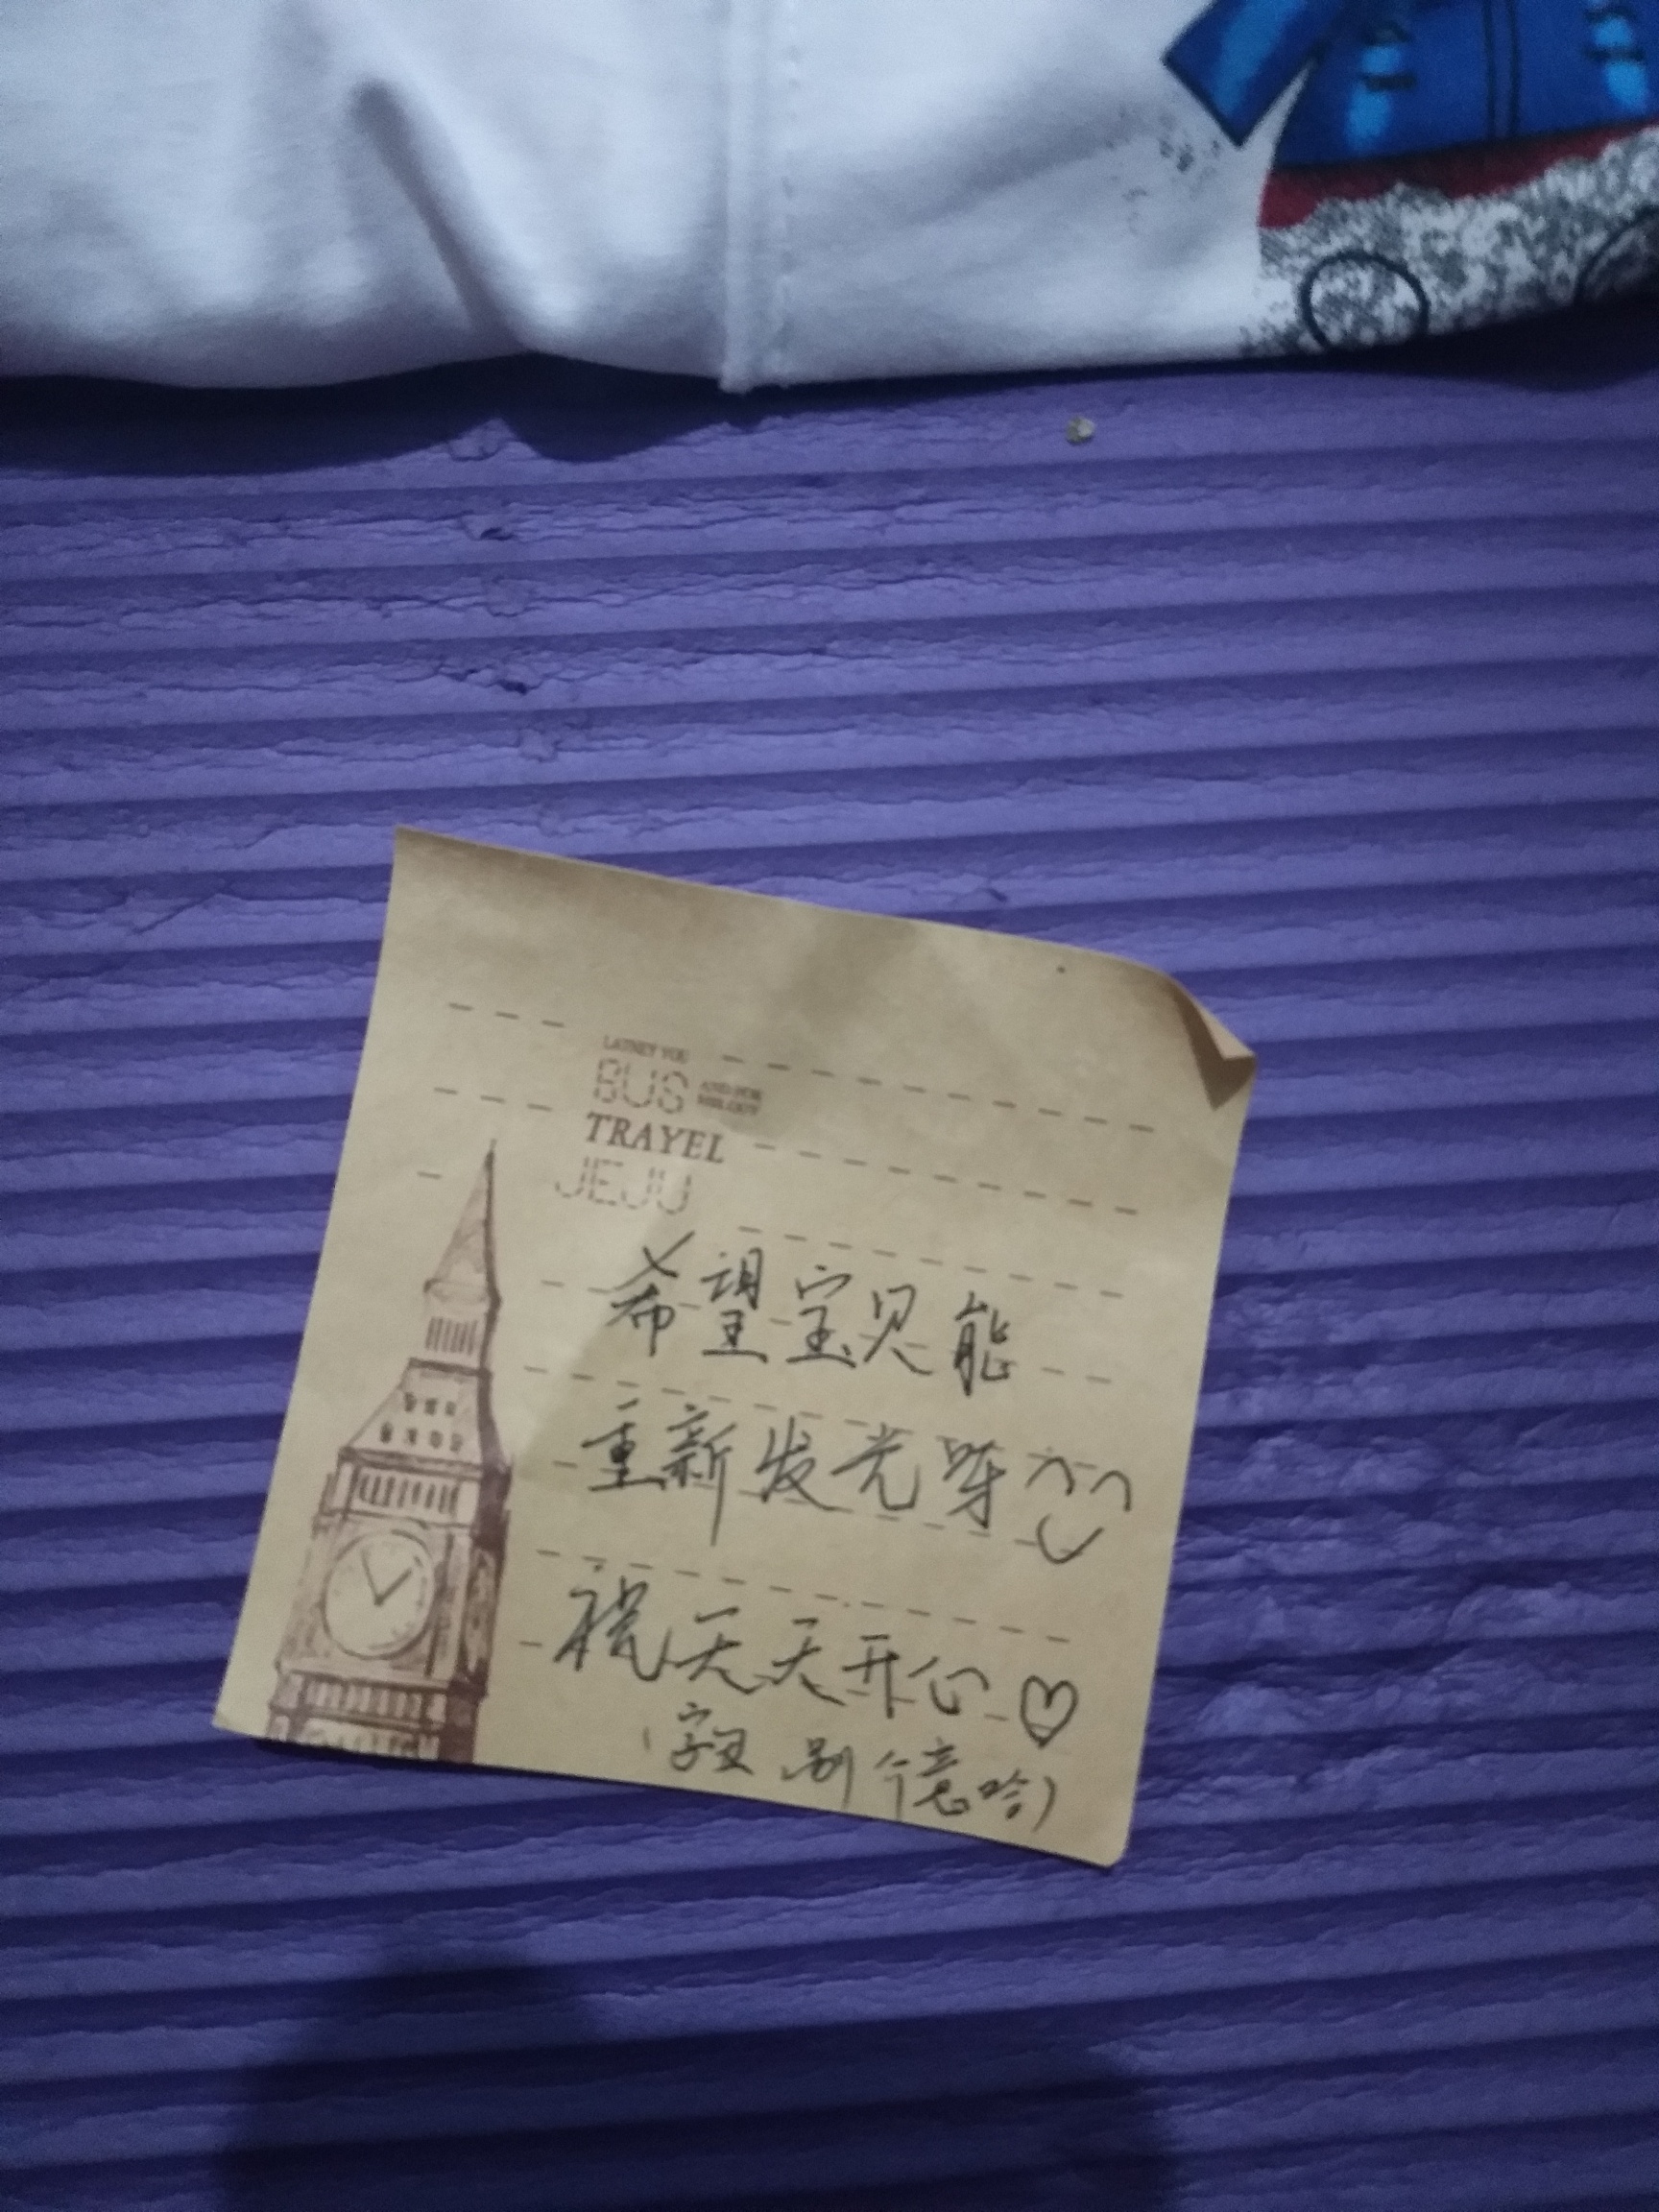 LATNEY YOU
BUS
TRAYEL
JEJU
希望宝贝能
重新发光呀
祝天天开心♡
(字丑 别介意哈)